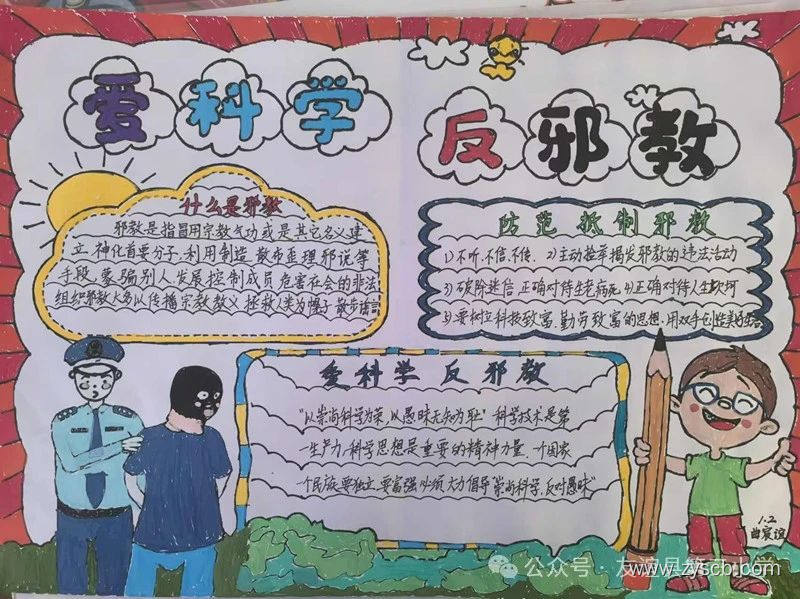 爱科学
反邪教
什么是邪教
邪教是指冒用宗教气功或是其它名义建
立,神化首要分子,利用制造散布歪理邪说等
手段,蒙骗别人发展控制成员危害社会的非法
组织邪教大多以传播宗教教义拯救人类为幌子散布谣言
防范抵制邪教
1)不听.不信.不传. 2)主动检举揭发邪教的违法活动
3)破除迷信,正确对待生老病死 4)正确对待人生坎坷
5)要树立科技致富、勤劳致富的思想,用双手创造美好
爱科学 反邪教
"以崇尚科学为荣,以愚昧无知为耻"科学技术是第
一生产力,科学思想是重要的精神力量.一个国家
一个民族要独立,要富强必须大力倡导"崇尚科学,反对愚昧"
1.2
曲宸谊
公众号·友谊县第三小学
www.zyscb.com